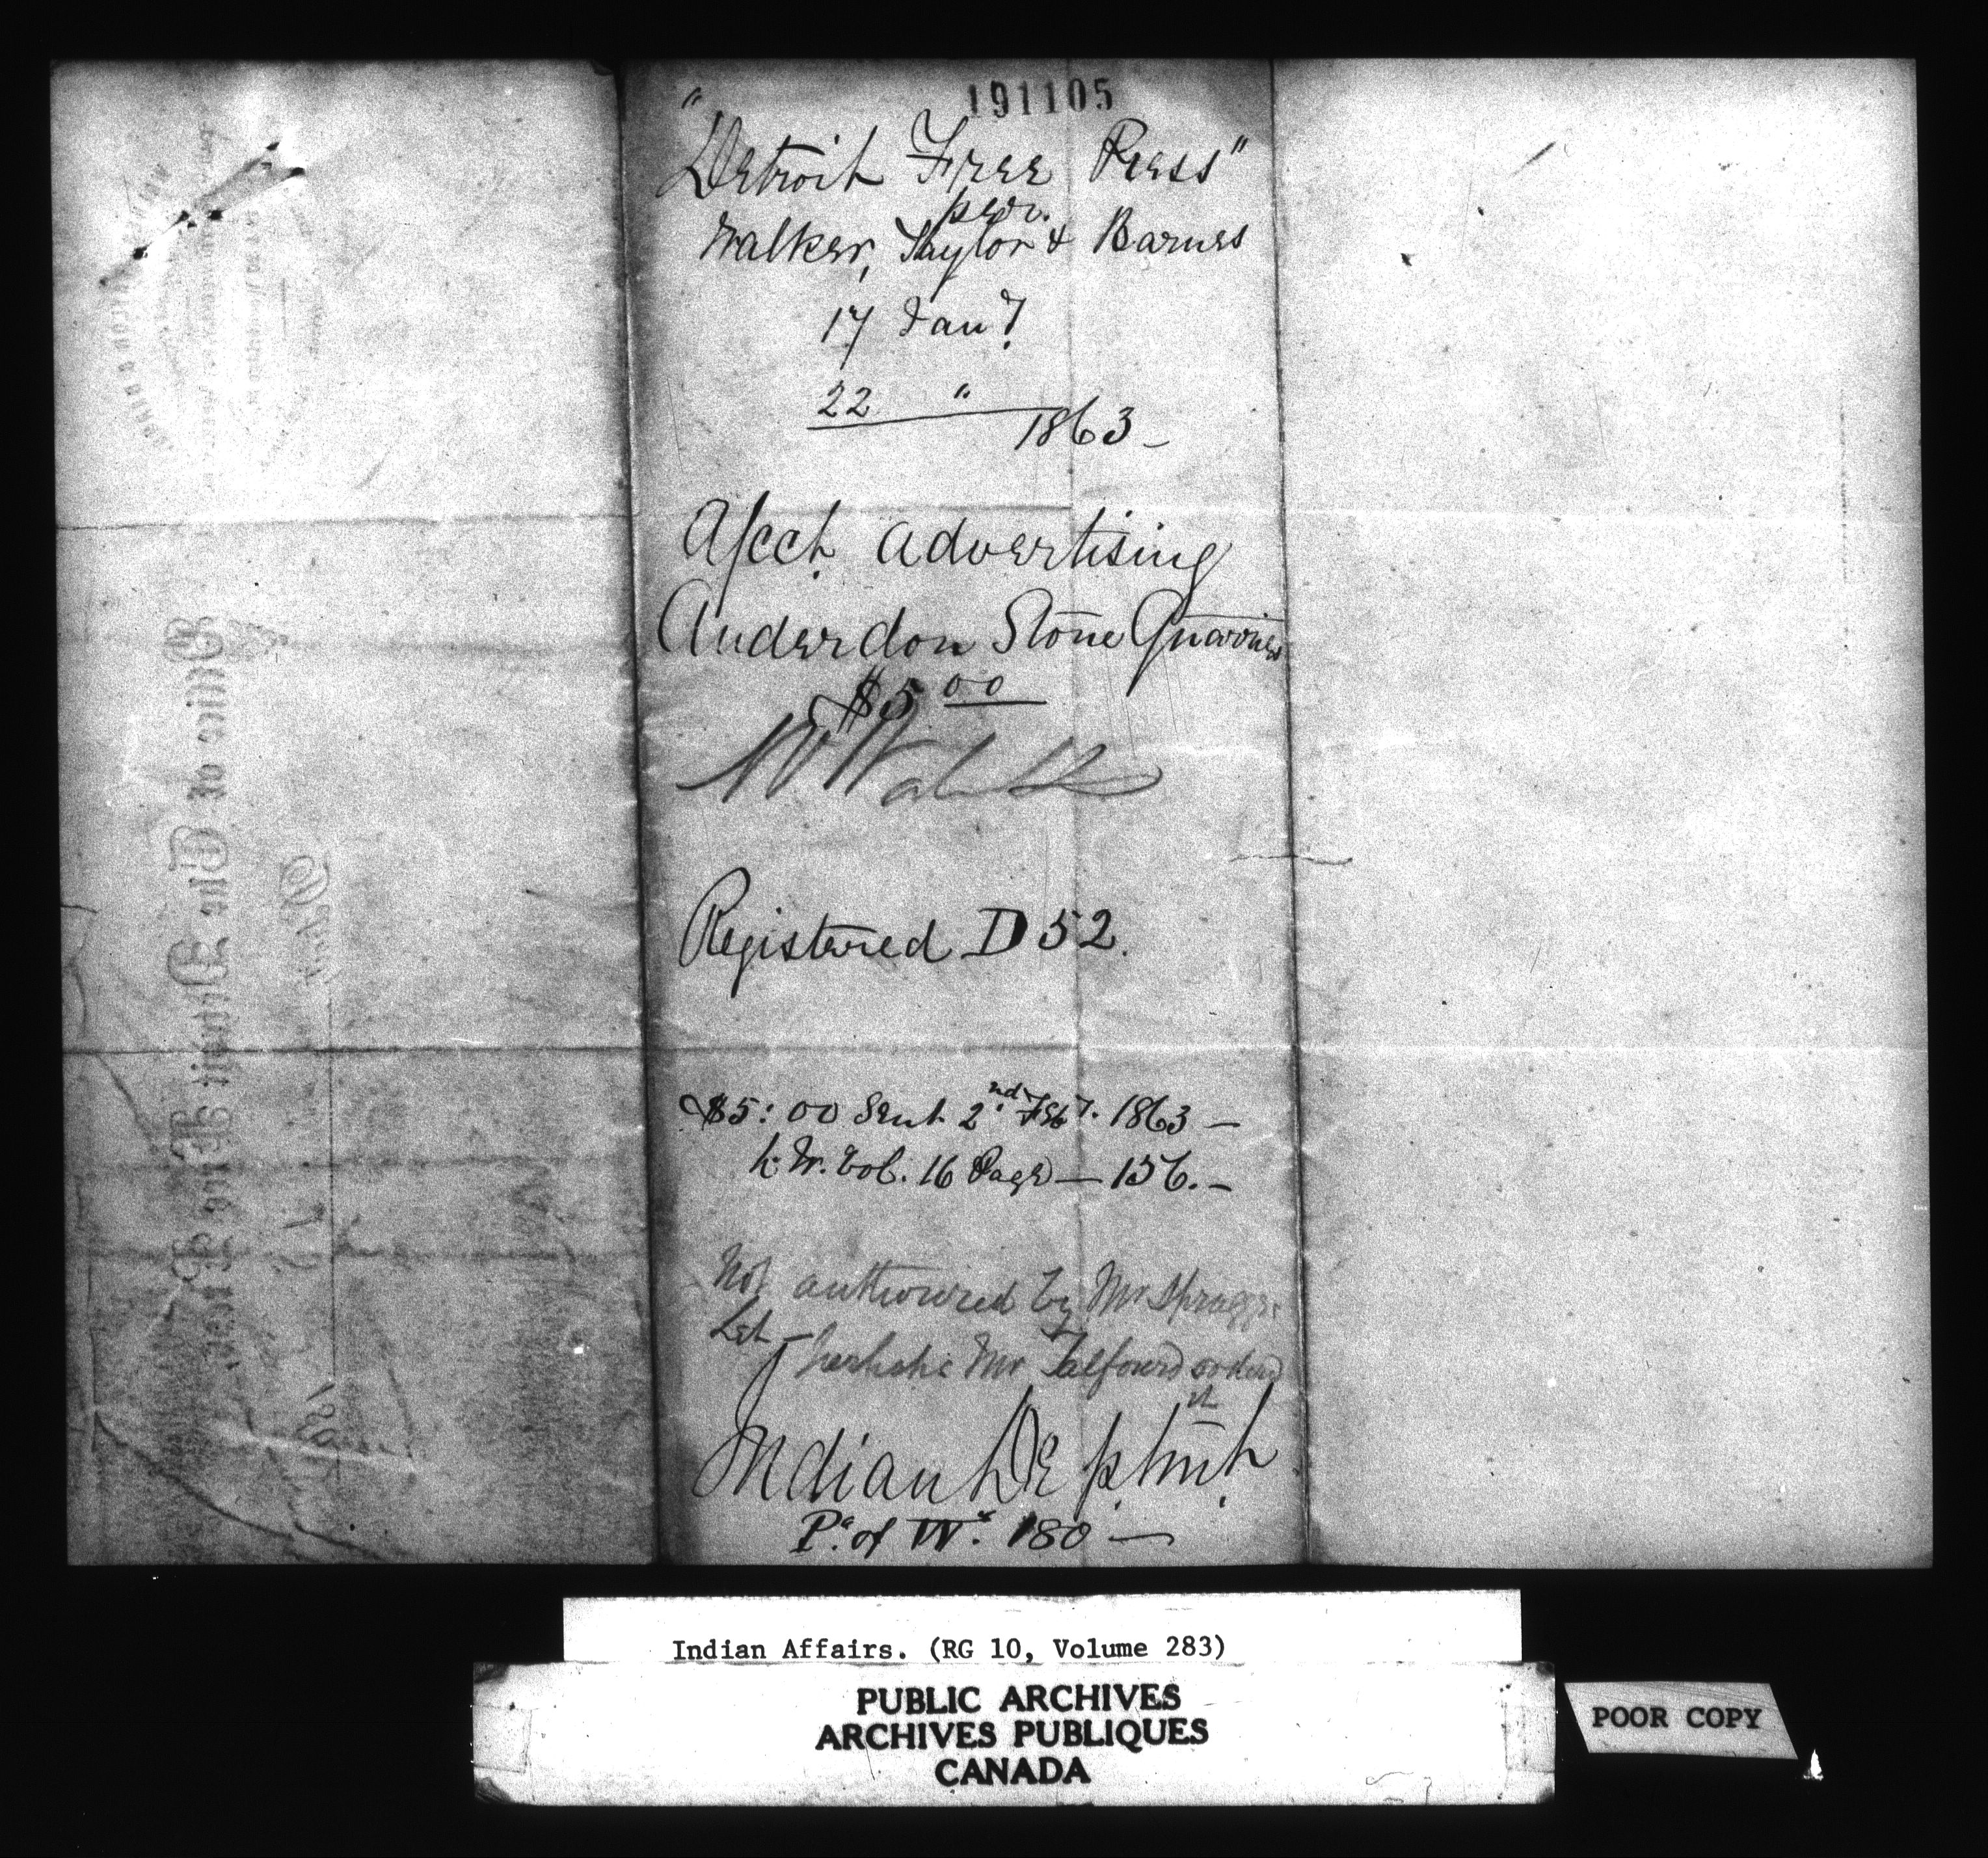 191105
"Detroit Free Press"
per.
Walker, Taylor & Barnes
17 Jany.
22 "
1863 –
A/cct. advertising
Anderdon Stone Quarries
$5 00
Registered D 52.
$5: 00 Sent 2nd Feby. 1863 –
Vol. 16 Page – 156. –
Not authorized by Mr Spragge
Let
perhaps Mr Talfourd ordered
it
Indian Deptmt.
180 –
Office of The Detroit Free Press,
Detroit,
186
Indian Affairs. (RG 10, Volume 283)
PUBLIC ARCHIVES
ARCHIVES PUBLIQUES
CANADA
POOR COPY